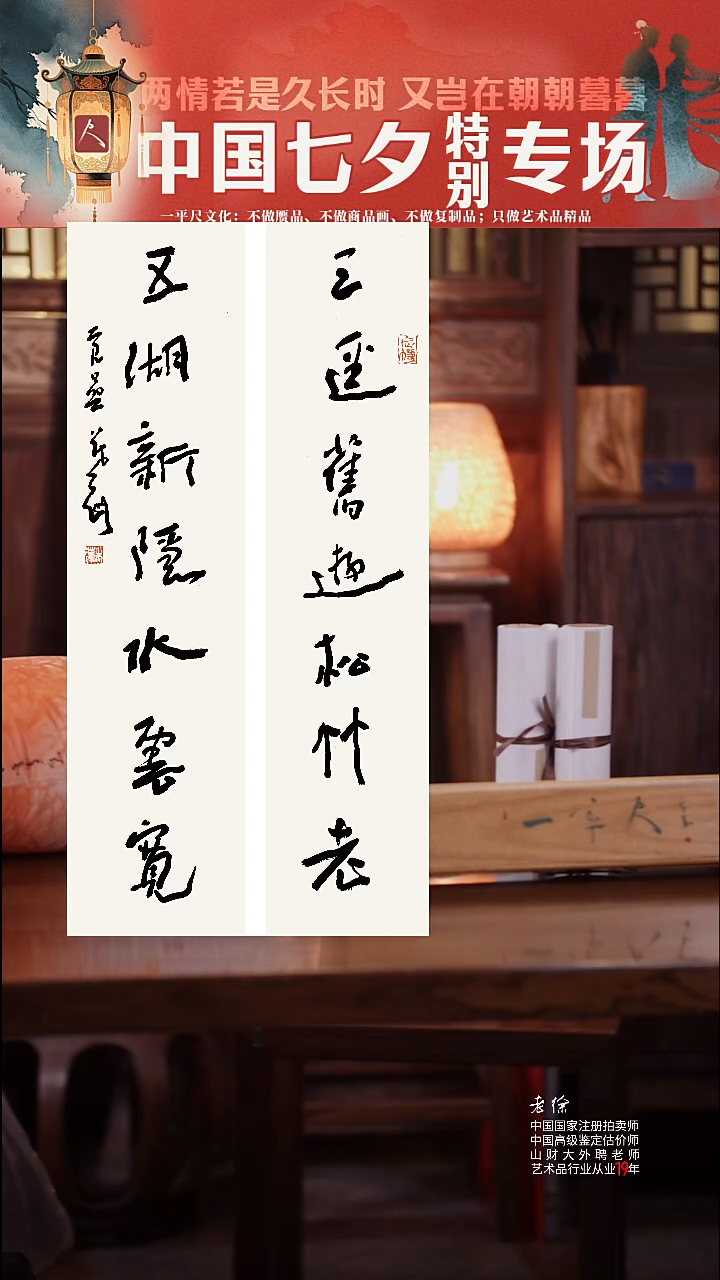 两情若是久长时 又岂在朝朝暮暮
中国七夕特别专场
一平尺文化：不做赝品、不做商品画、不做复制品；只做艺术品精品
尺
三逕舊遊松竹老
五湖新隱水雲寬
一平尺
老徐
中国国家注册拍卖师
中国高级鉴定估价师
山财大外聘老师
艺术品行业从业19年